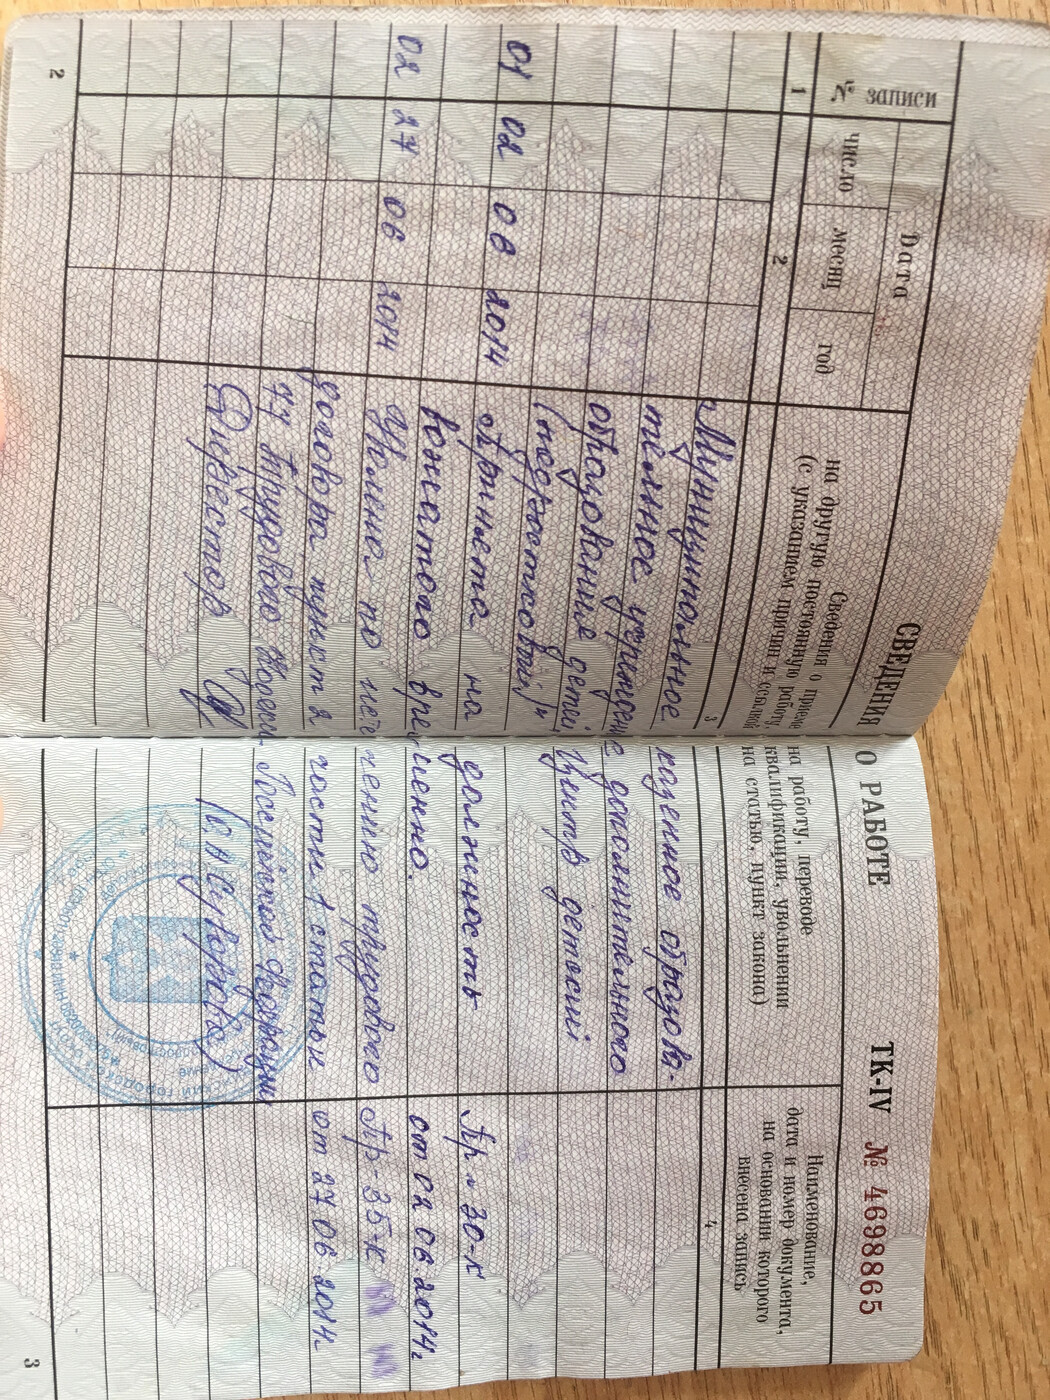 СВЕДЕНИЯ О РАБОТЕ ТК-IV № 4698865
№ записи
Дата
число
месяц
год
Сведения о приеме на работу, переводе
на другую постоянную работу, квалификации, увольнении
(с указанием причин и ссылкой на статью, пункт закона)
Наименование,
дата и номер документа,
на основании которого
внесена запись
1 2 3 4
Муниципальное казенное образова-
тельное учреждение дополнительного
образования детей Центр детский
(подростковый)"
01 02 06 2014 принята на должность Пр-30-к
вожатого временно. от 02 06 2014г
02 27 06 2014 Уволена по истечению трудового Пр-35-к
договора пункт 2 части 1 статьи от 27 06 2014г.
77 Трудового Кодекса Российской Федерации
Директор
2
3